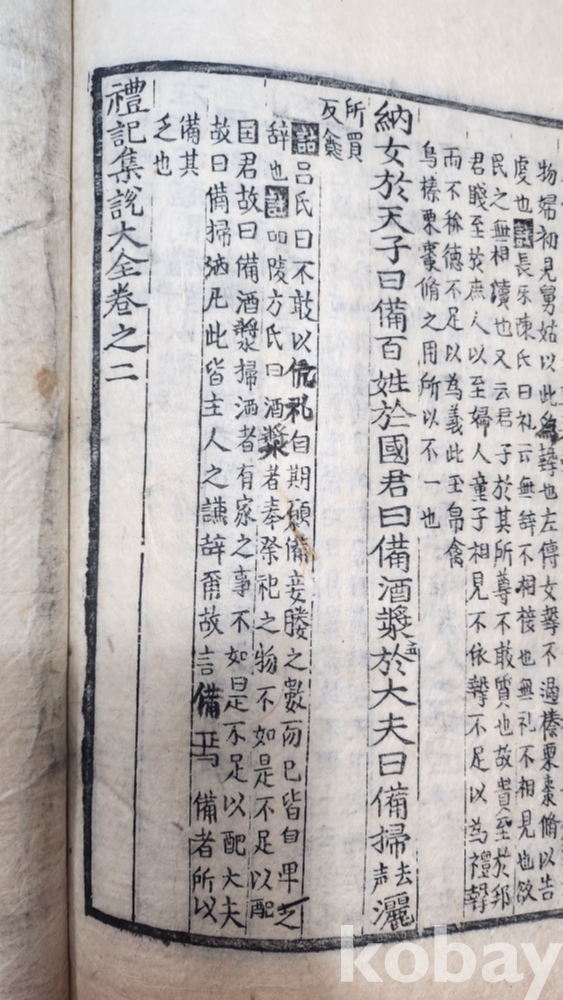 物婦初見舅姑以此為贄也左傳女贄不過榛栗棗脩以告
虔也 長乐陳氏曰礼云無辞不相接也無礼不相見也欲
民之無相瀆也又云君子於其所尊不敢質也故貴至於邦
君賤至於庶人以至婦人童子相見不依贄不足以為禮贄
而不称德不足以為義此玉帛禽
鸟榛栗棗脩之用所以不一也
納女於天子曰備百姓於國君曰備酒漿於大夫曰備掃去声灑
所買
反
吕氏曰不敢以伉礼自期願備妾媵之數而已皆自卑之
辞也 陵方氏曰酒漿者奉祭祀之物不如是不足以配
国君故曰備酒漿掃洒者有家之事不如是不足以配大夫
故曰備掃洒凡此皆主人之謙辞爾故言備焉備者所以
備其
乏也
禮記集説大全卷之二
kobay